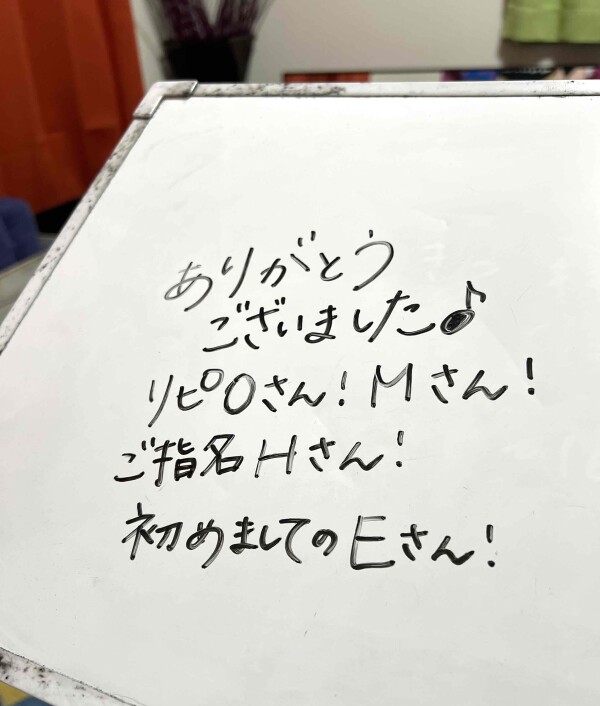 ありがとう
ございました♪
リピOさん！Mさん！
ご指名Hさん！
初めましてのEさん！